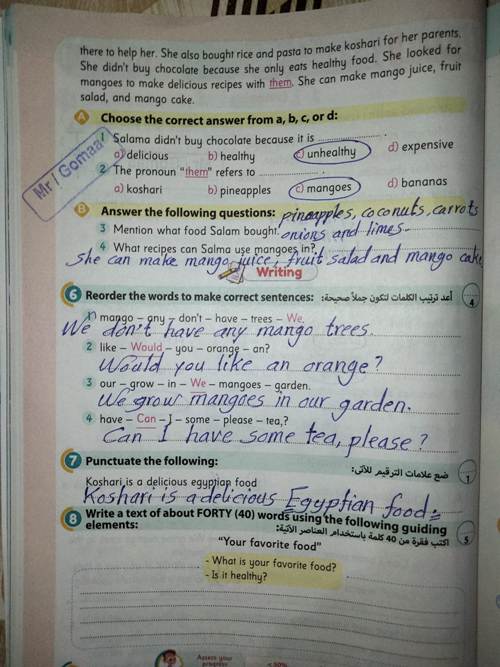 there to help her. She also bought rice and pasta to make koshari for her parents.
She didn't buy chocolate because she only eats healthy food. She looked for
mangoes to make delicious recipes with them. She can make mango juice, fruit
salad, and mango cake.
A Choose the correct answer from a, b, c, or d:
1 Salama didn't buy chocolate because it is ....................
a) delicious b) healthy c) unhealthy d) expensive
2 The pronoun "them" refers to ....................
a) koshari b) pineapples c) mangoes d) bananas
Mr / Gomaa
B Answer the following questions: pineapples, coconuts, carrots
3 Mention what food Salam bought. onions and limes.
4 What recipes can Salma use mangoes in?
She can make mango juice, fruit salad and mango cake
Writing
6 Reorder the words to make correct sentences: أعد ترتيب الكلمات لتكون جملًا صحيحة: 4
1 mango – any – don't – have – trees – We.
We don't have any mango trees.
2 like – Would – you – orange – an?
Would you like an orange?
3 our – grow – in – We – mangoes – garden.
We grow mangoes in our garden.
4 have – Can – I – some – please – tea,?
Can I have some tea, please?
7 Punctuate the following: ضع علامات الترقيم للآتى: 1
Koshari is a delicious egyptian food
Koshari is a delicious Egyptian food.
8 Write a text of about FORTY (40) words using the following guiding
elements: اكتب فقرة من 40 كلمة باستخدام العناصر الآتية: 5
"Your favorite food"
- What is your favorite food?
- Is it healthy?
Assess your
progress
< 50%